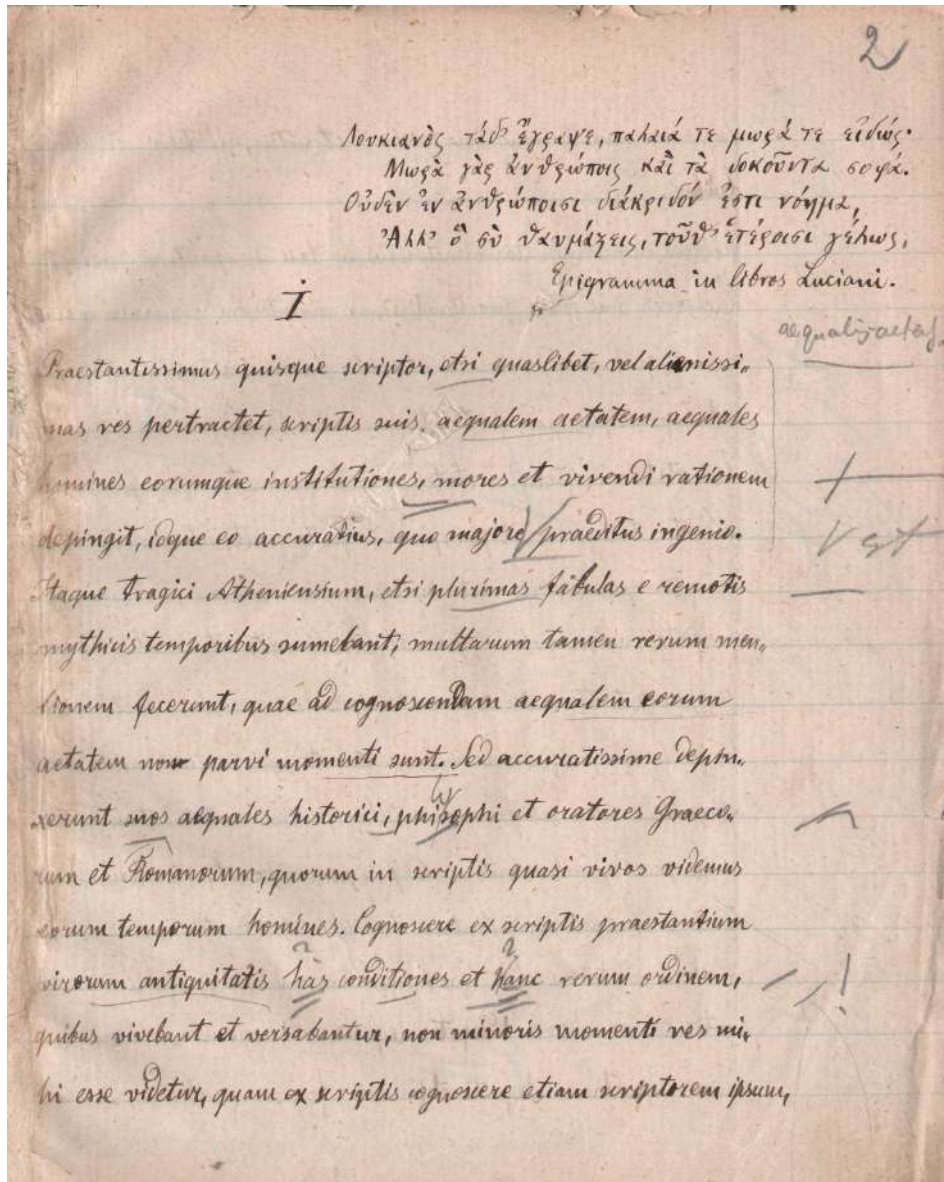 2
Λουκιανὸς τάδ' ἔγραψε, παλαιά τε μωρά τε εἰδώς·
Μωρὰ γὰρ ἀνθρώποις καὶ τὰ δοκοῦντα σοφά.
Οὐδὲν ἐν ἀνθρώποισι διάκριδόν ἐστι νόημα,
Ἀλλ' ὃ σὺ θαυμάζεις, τοῦθ' ἑτέροισι γέλως,
Epigramma in libros Luciani.
I
aequalis aetas
Praestantissimus quisque scriptor, etsi quaslibet, vel alienissi„
mas res pertractet, scriptis suis aequalem aetatem, aequales
homines eorumque institutiones, mores et vivendi rationem
depingit, idque eo accuratius, quo majore praeditus ingenio.
V est
Itaque tragici Atheniensium, etsi plurimas fabulas e remotis
mythicis temporibus sumebant, multarum tamen rerum men„
tionem fecerunt, quae ad cognoscendam aequalem eorum
aetatem non parvi momenti sunt. Sed accuratissime depin„
xerunt suos aequales historici, phisophi et oratores Graeco„
rum et Romanorum, quorum in scriptis quasi vivos videmus
eorum temporum homines. Cognoscere ex scriptis praestantium
? ?
virorum antiquitatis has conditiones et hanc rerum ordinem, !
quibus vivebant et versabantur, non minoris momenti res mi„
hi esse videtur, quam ex scriptis cognoscere etiam scriptorem ipsum,